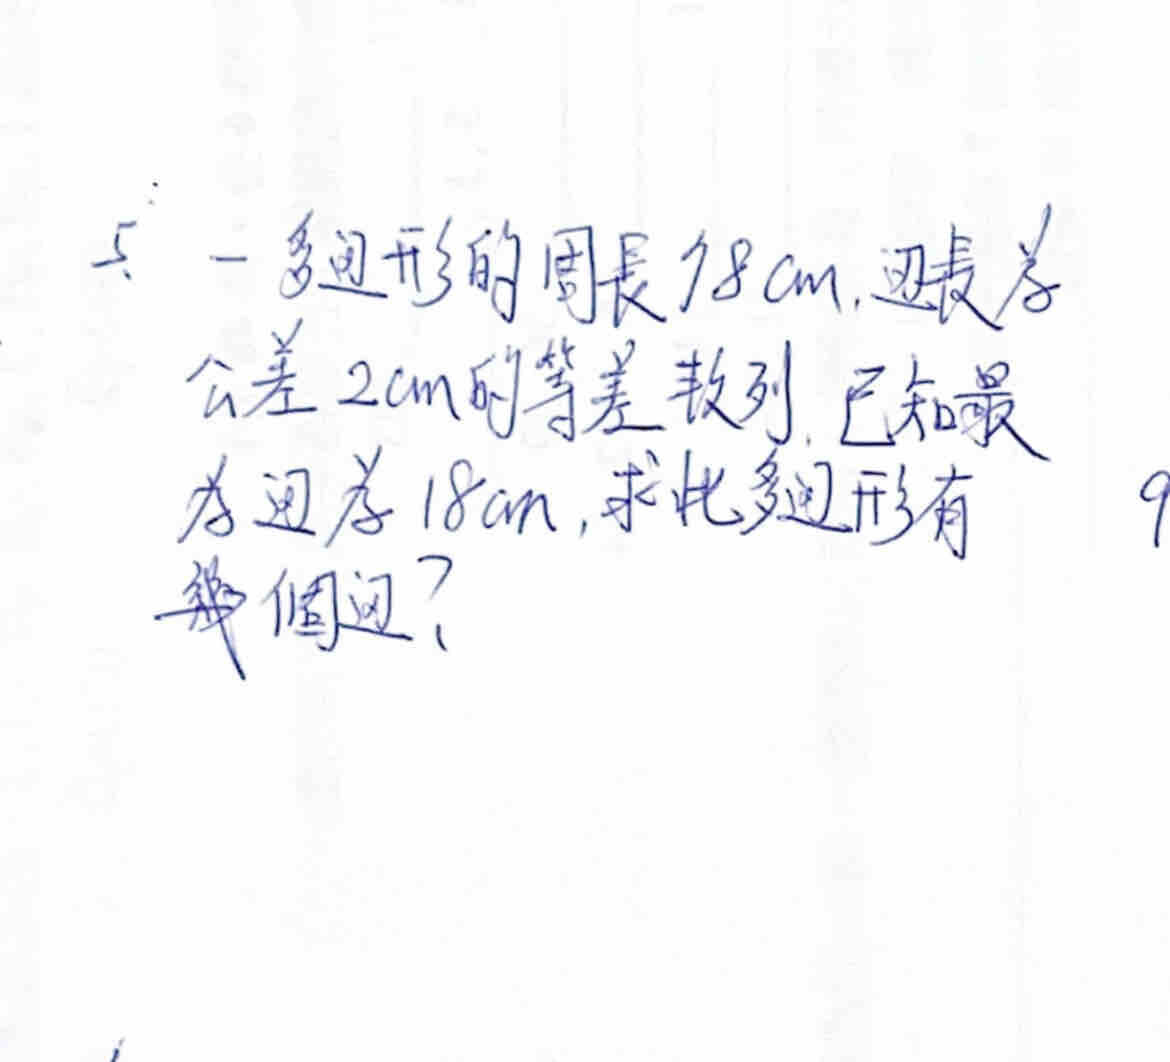 5. 一多边形的周長98cm, 边長為
公差2cm的等差数列, 已知最
為边為18cm, 求此多边形有
幾個边?
9